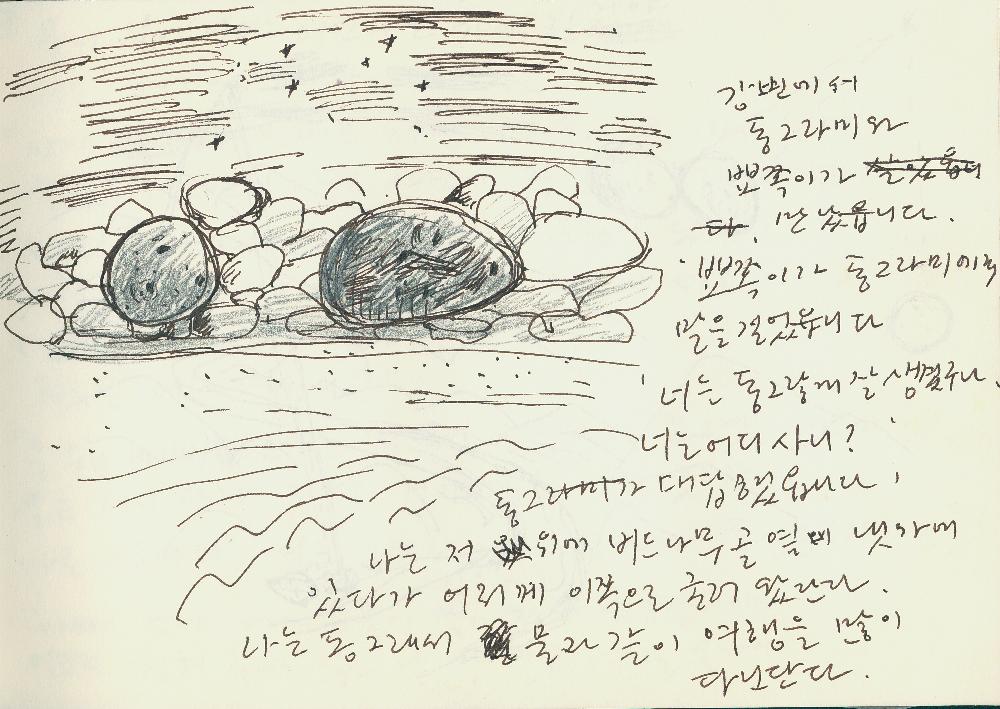 강변에서
동그라미와
뾰쪽이가 살았읍니
다. 만났읍니다.
뾰쪽이가 동그라미에게
말을 걸었읍니다
너는 동그랗게 잘 생겼구나.
너는 어디 사니?
동그라미가 대답했읍니다.
나는 저 위에 버드나무골 옆에 냇가에
있다가 어리께 이쪽으로 굴러 왔단다.
나는 동그래서 물과 같이 여행을 많이
다닌단다.